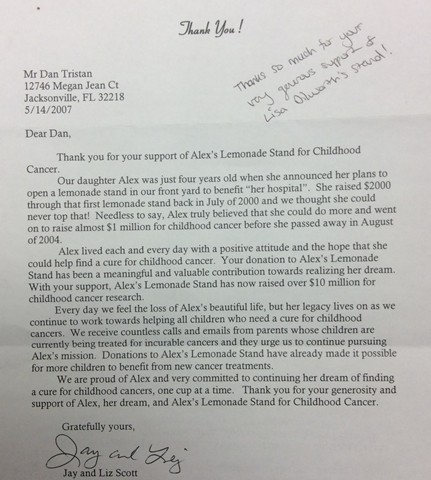 Thank You !
Thanks so much for your
very generous support of
Lisa
Stand!
Mr Dan Tristan
12746 Megan Jean Ct
Jacksonville, FL 32218
5/14/2007
Dear Dan,
Thank you for your support of Alex's Lemonade Stand for Childhood
Cancer.
Our daughter Alex was just four years old when she announced her plans to
open a lemonade stand in our front yard to benefit "her hospital". She raised $2000
through that first lemonade stand back in July of 2000 and we thought she could
never top that! Needless to say, Alex truly believed that she could do more and went
on to raise almost $1 million for childhood cancer before she passed away in August
of 2004.
Alex lived each and every day with a positive attitude and the hope that she
could help find a cure for childhood cancer. Your donation to Alex's Lemonade
Stand has been a meaningful and valuable contribution towards realizing her dream.
With your support, Alex's Lemonade Stand has now raised over $10 million for
childhood cancer research.
Every day we feel the loss of Alex's beautiful life, but her legacy lives on as we
continue to work towards helping all children who need a cure for childhood
cancers. We receive countless calls and emails from parents whose children are
currently being treated for incurable cancers and they urge us to continue pursuing
Alex's mission. Donations to Alex's Lemonade Stand have already made it possible
for more children to benefit from new cancer treatments.
We are proud of Alex and very committed to continuing her dream of finding
a cure for childhood cancers, one cup at a time. Thank you for your generosity and
support of Alex, her dream, and Alex's Lemonade Stand for Childhood Cancer.
Gratefully yours,
Jay and Liz
Jay and Liz Scott